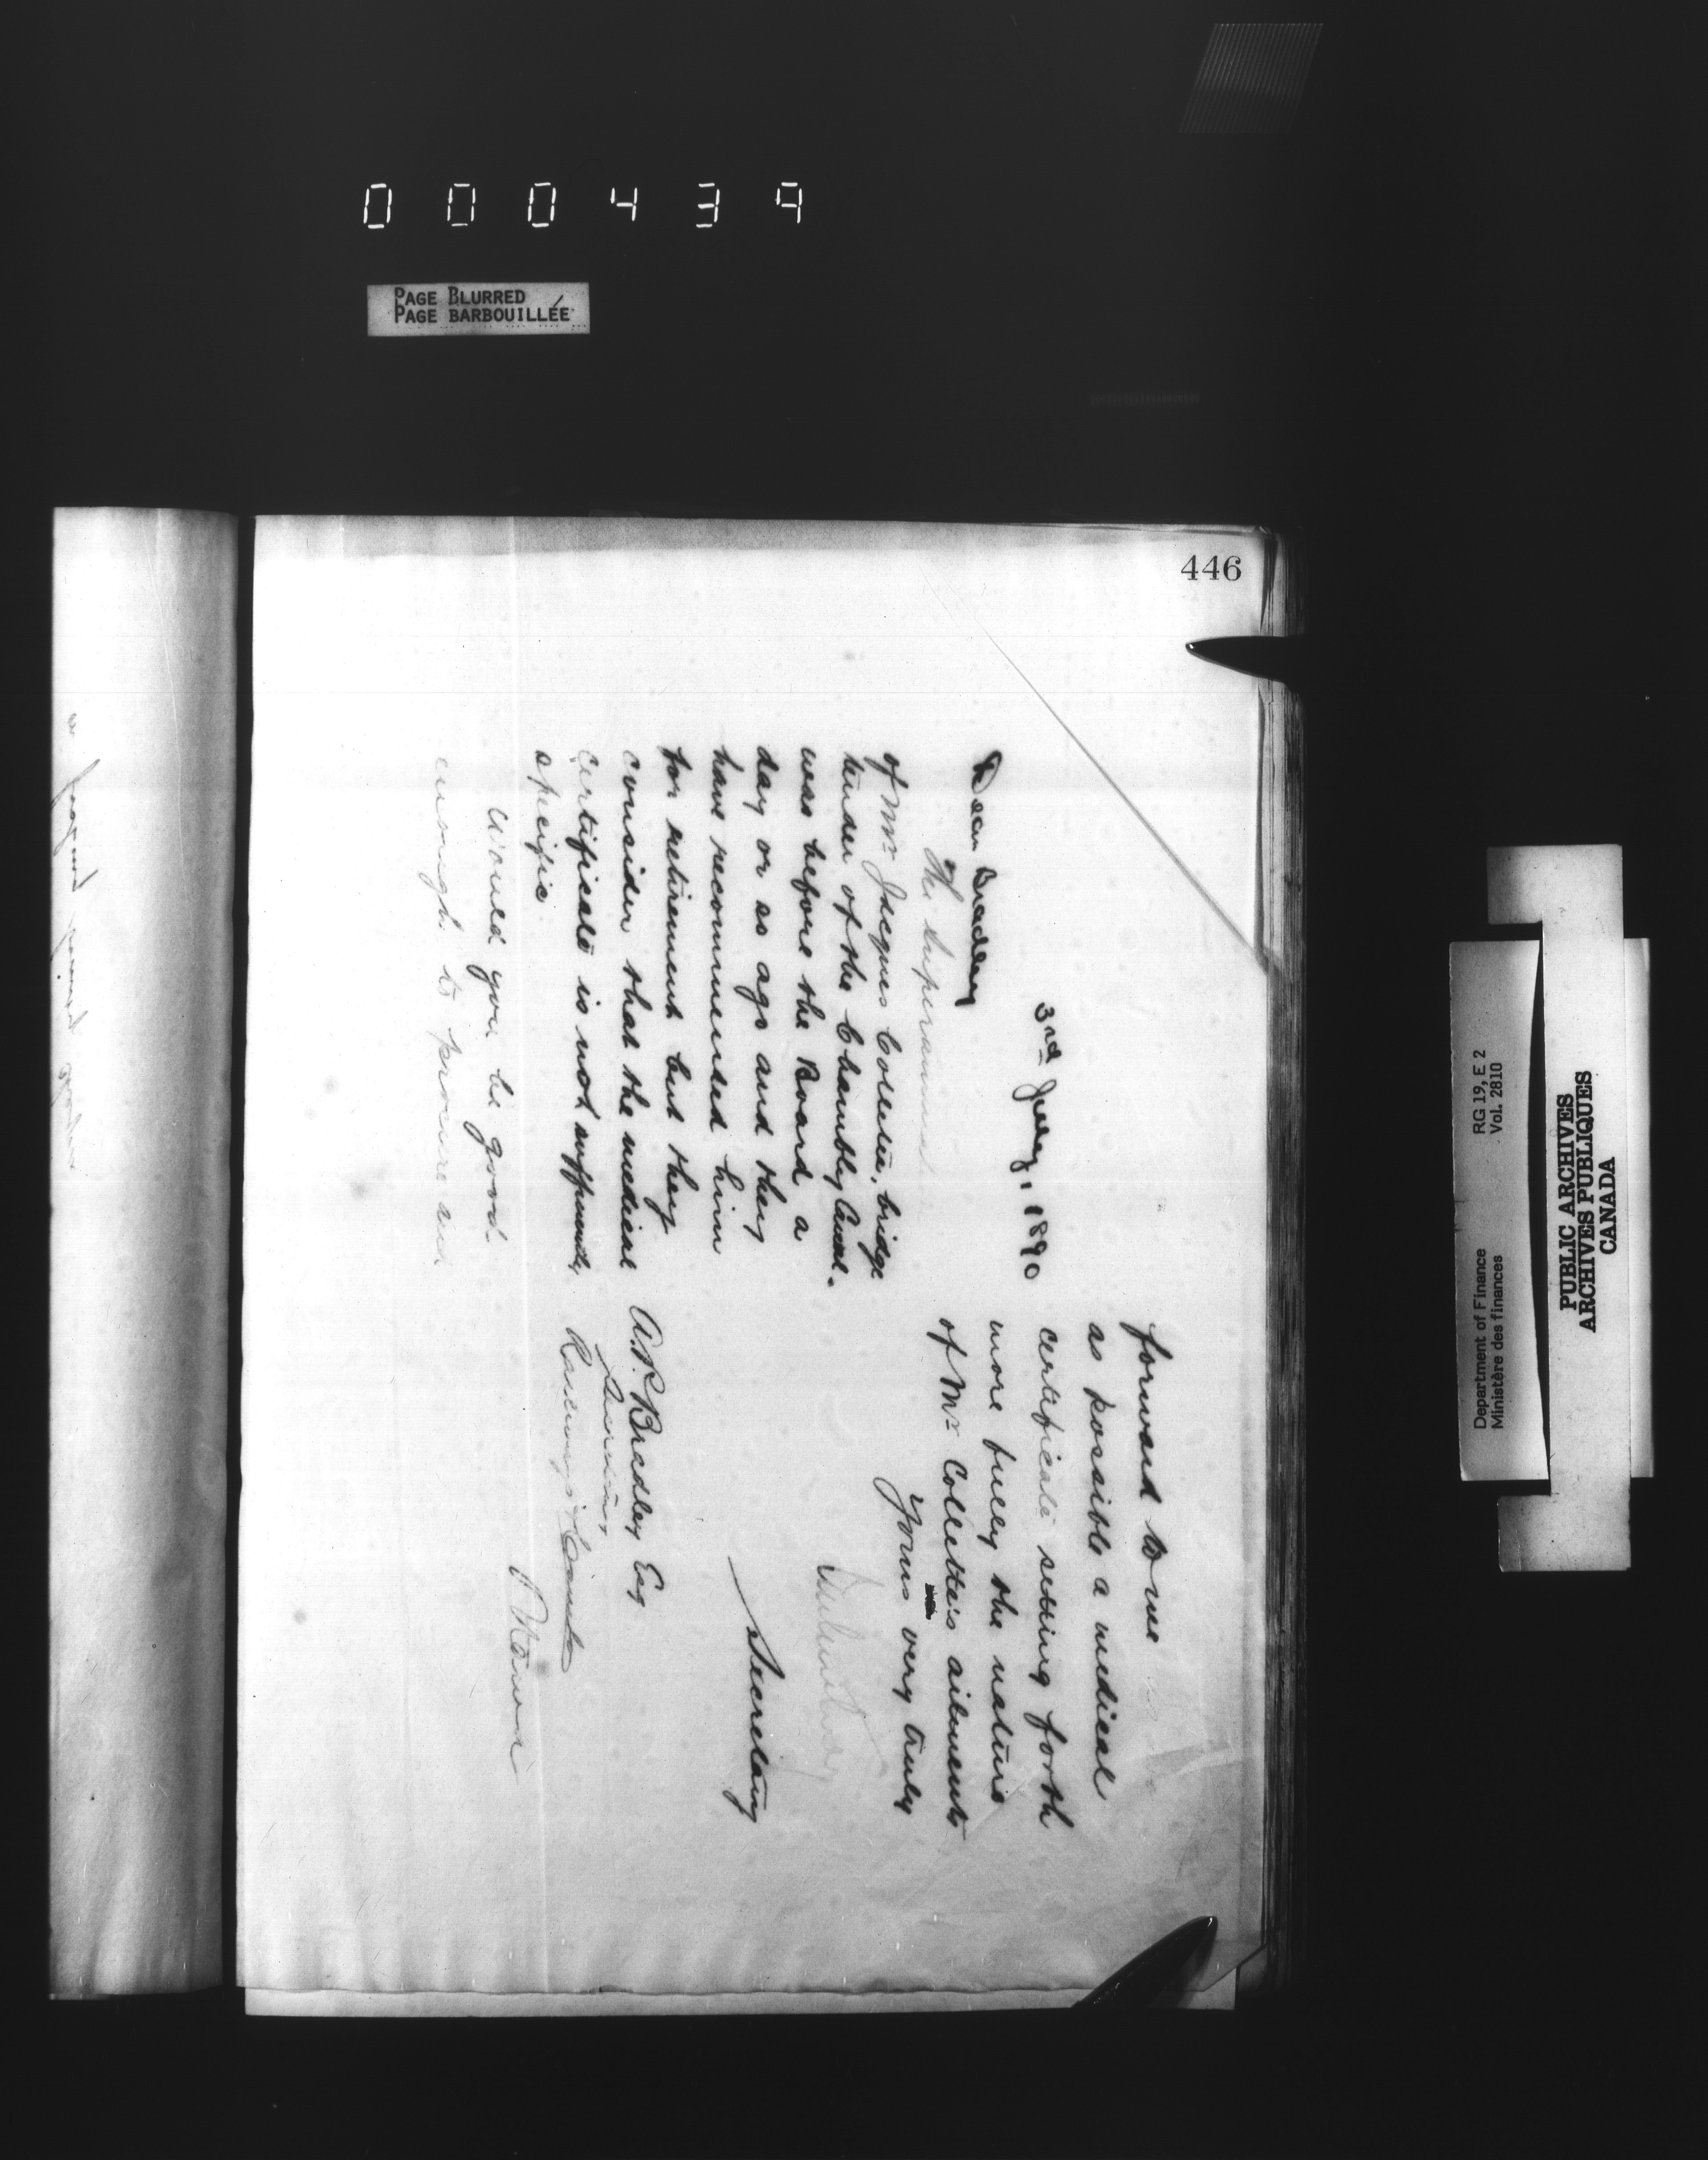 000439
PAGE BLURRED
PAGE BARBOUILLÉE
446
3rd July, 1890
Dear Bradley
The superannuat
of Mr Jacques Collette, bridge
tender of the Chambly Canal.
was before the Board a
day or so ago and they
have recommended him
for retirement but they
consider that the medical
certificate is not sufficiently
specific
Would you be good
enough to procure and
forward to me
as possible a medical
certificate setting forth
more fully the nature
of Mr Collette's ailments
Yours very truly
Secretary
A. P. Bradley Esq
Secretary
Railways & Canals
Ottawa
Department of Finance
Ministère des finances
RG 19, E 2
Vol. 2810
PUBLIC ARCHIVES
ARCHIVES PUBLIQUES
CANADA